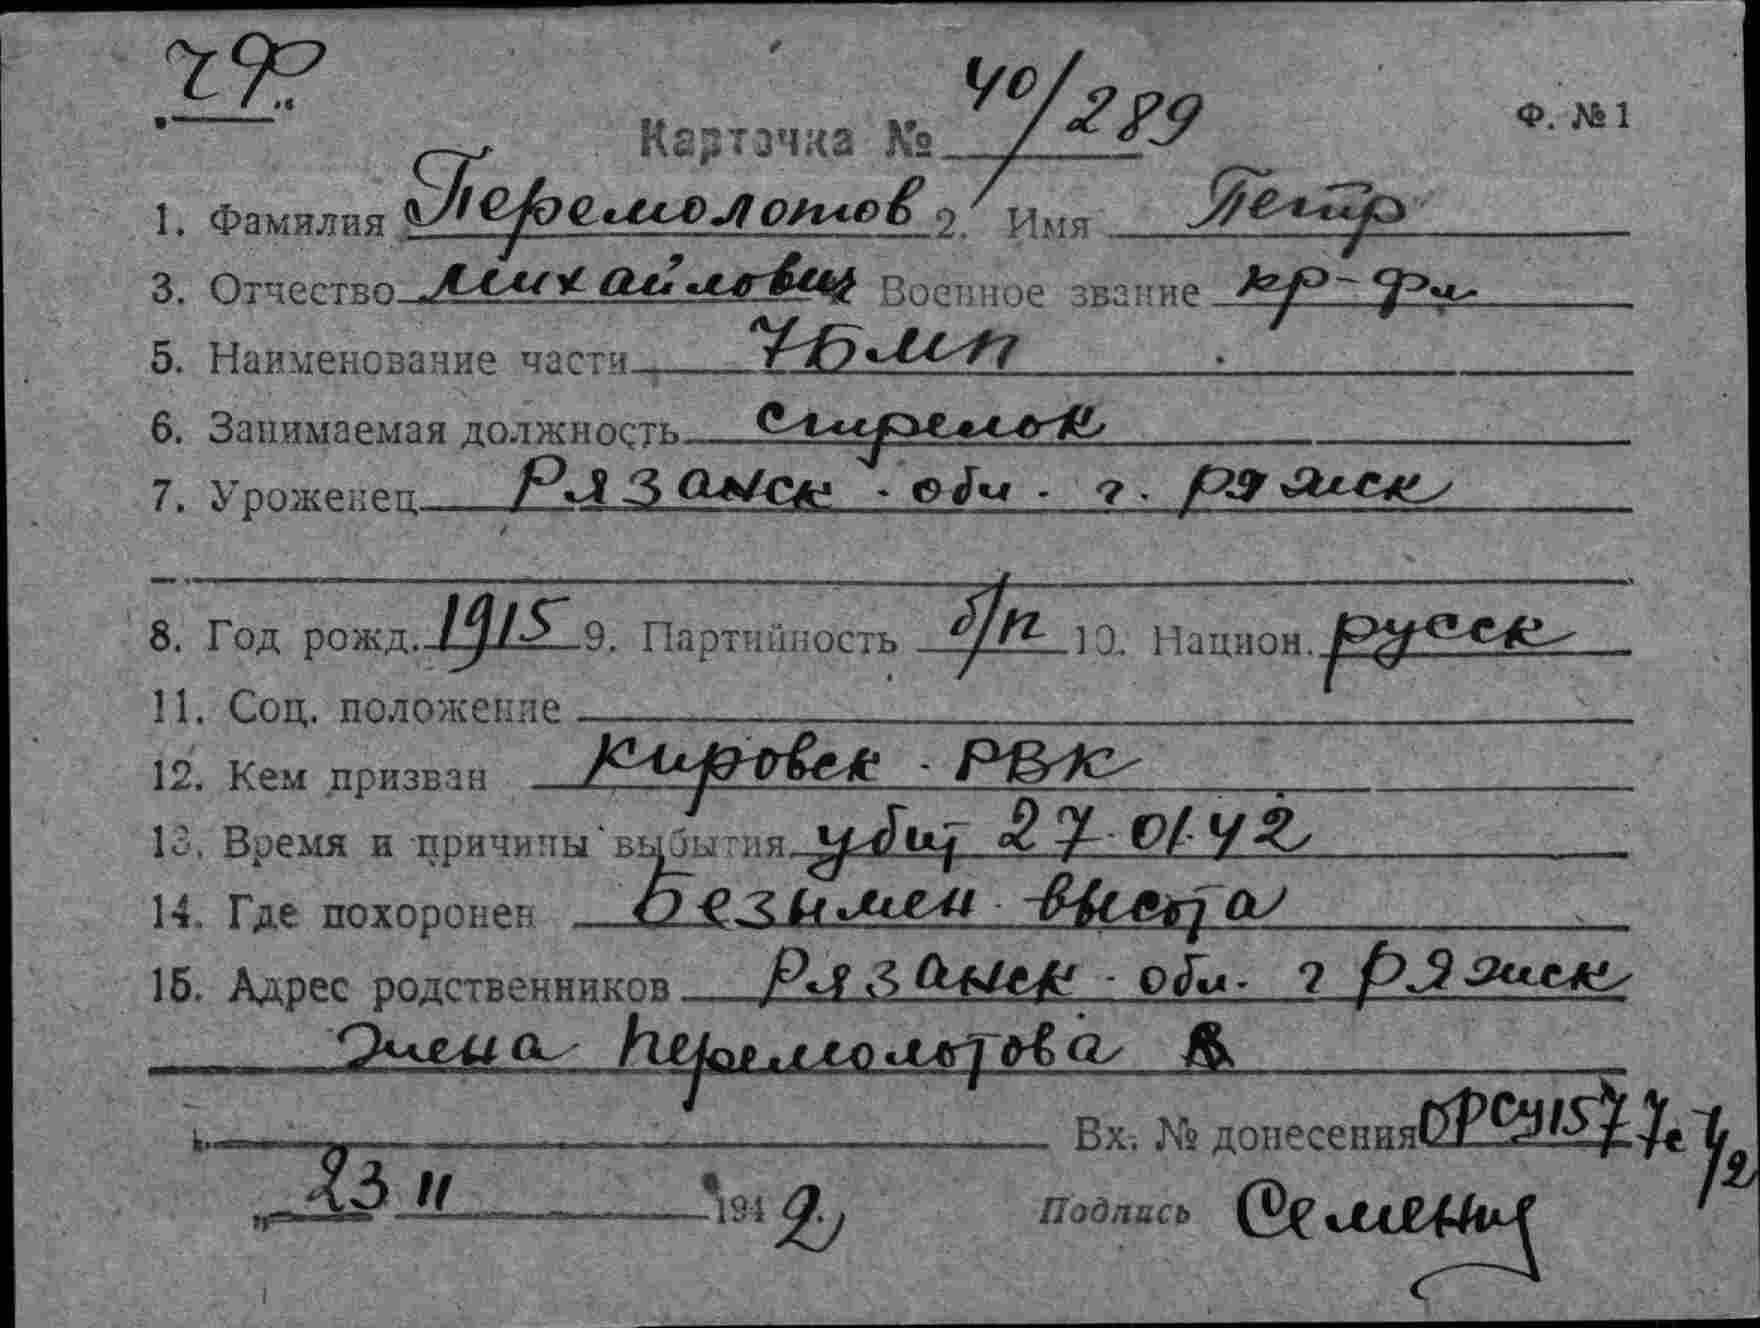 ЧФ
Карточка № 40/289
Ф. № 1
1. Фамилия Перемолотов 2. Имя Петр
3. Отчество Михайлович Военное звание кр-фл
5. Наименование части 7БМП
6. Занимаемая должность стрелок
7. Уроженец Рязанск. обл. г. Ряжск
8. Год рожд. 1915 9. Партийность б/п 10. Национ. русск
11. Соц. положение
12. Кем призван Кировск. РВК
13. Время и причины выбытия убит 27.01.42
14. Где похоронен Безымен. высота
15. Адрес родственников Рязанск. обл. г Ряжск
жена Перемолотова
Вх. № донесения ОРСу1577с
„23 11 1942.
Подпись